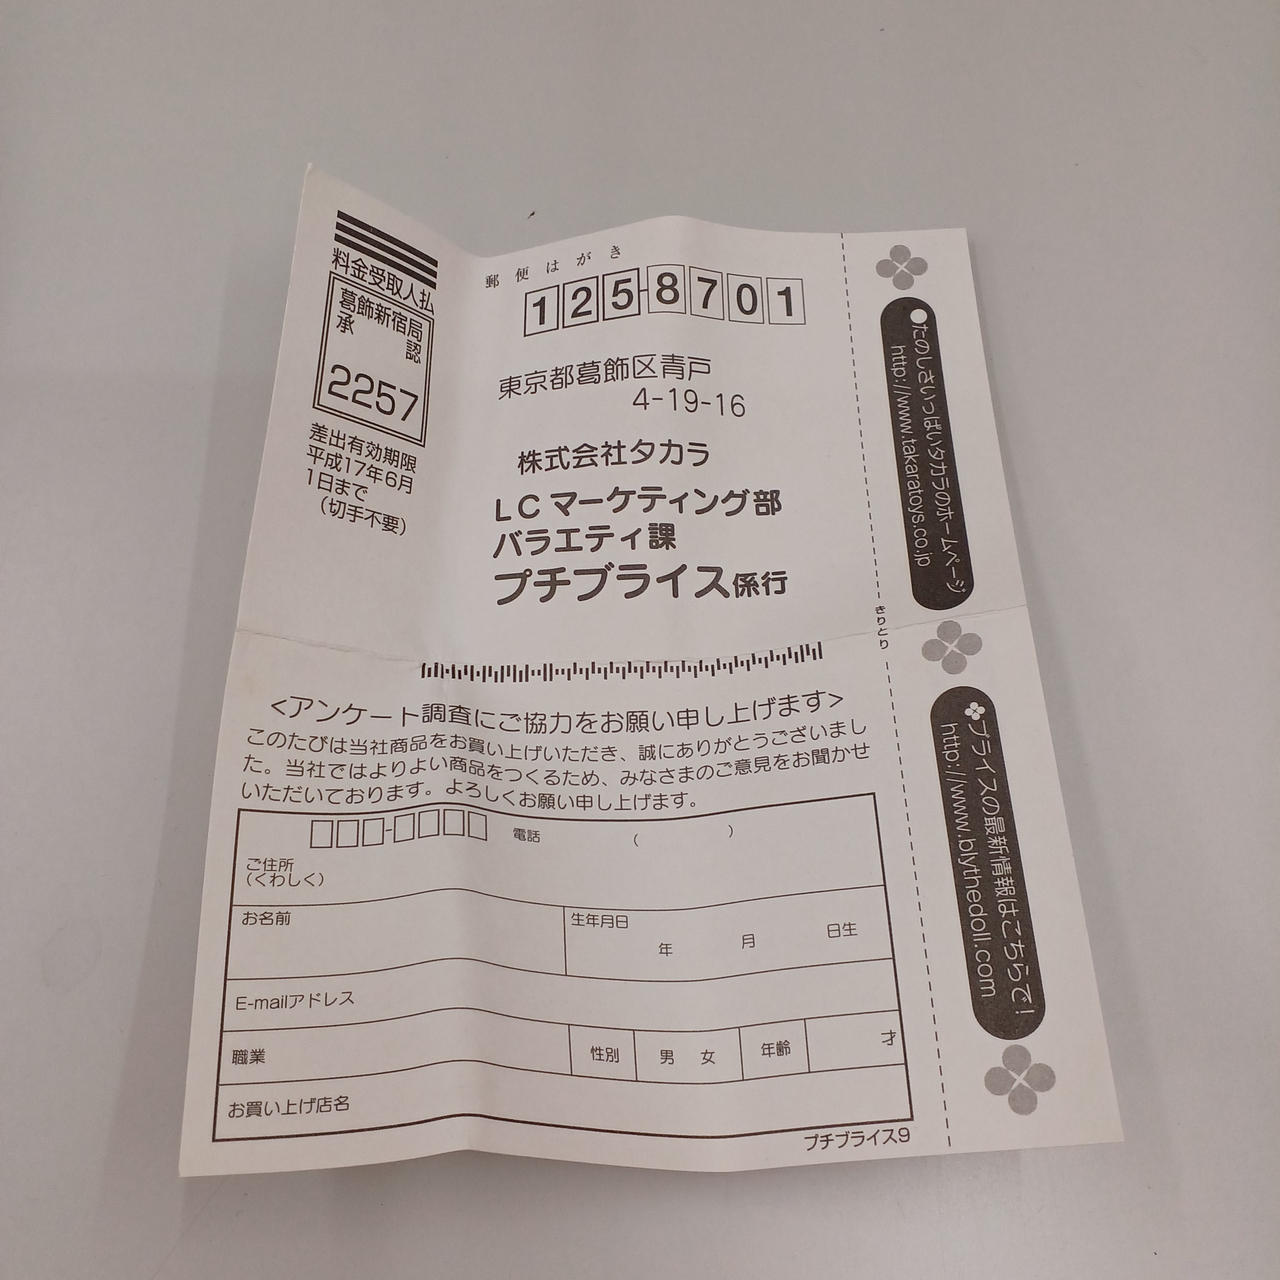 料金受取人払
葛飾新宿局
承認
2257
差出有効期限
平成17年6月
1日まで
(切手不要)
郵便はがき
125-8701
東京都葛飾区青戸
4-19-16
株式会社タカラ
LCマーケティング部
バラエティ課
プチブライス係行
<アンケート調査にご協力をお願い申し上げます>
このたびは当社商品をお買い上げいただき、誠にありがとうございまし
た。当社ではよりよい商品をつくるため、みなさまのご意見をお聞かせ
いただいております。よろしくお願い申し上げます。
電話 ( )
ご住所
(くわしく)
お名前
生年月日
年 月 日生
E-mailアドレス
職業
性別 男 女 年齢 才
お買い上げ店名
プチブライス9
きりとり
●たのしさいっぱいタカラのホームページ
http://www.takaratoys.co.jp
ブライスの最新情報はこちらで!
http://www.blythedoll.com